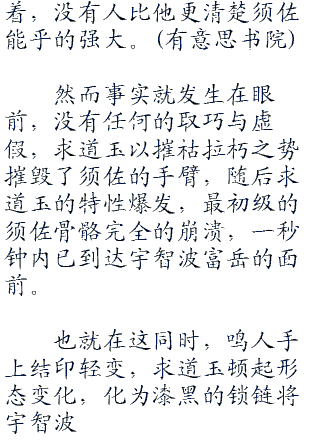 着，没有人比他更清楚须佐
能乎的强大。(有意思书院)
然而事实就发生在眼
前，没有任何的取巧与虚
假，求道玉以摧枯拉朽之势
摧毁了须佐的手臂，随后求
道玉的特性爆发，最初级的
须佐骨骼完全的崩溃，一秒
钟内已到达宇智波富岳的面
前。
也就在这同时，鸣人手
上结印轻变，求道玉顿起形
态变化，化为漆黑的锁链将
宇智波